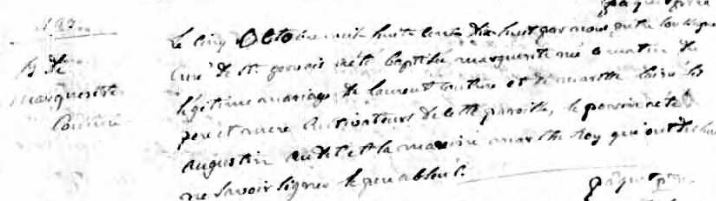 B. de
Marguerite
Couture
Le cinq Octobre mil huit cent dix huit par nous curé
Curé de St. Gervais a été baptisée marguerite née ce matin du
légitime mariage de laurent Couture et de marthe les
pere et mere Cultivateurs de cette paroisse, le parrain a été
augustin audet et la maraine marthe Roy qui ont declaré
ne savoir signer le pere absent.
Paquet ptre.